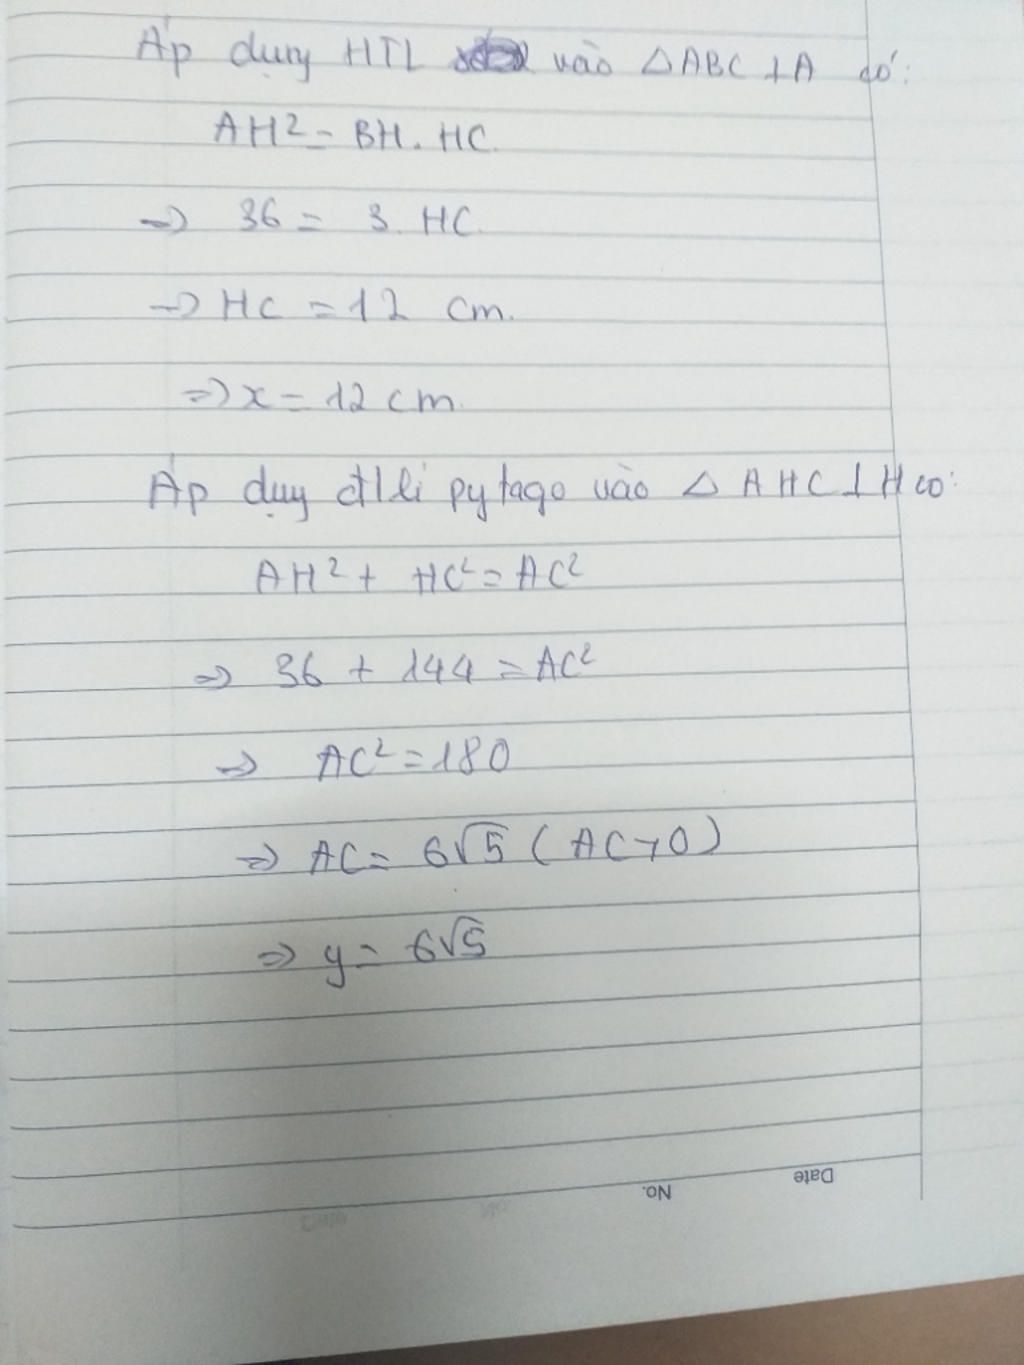 Áp dụng HTL vào △ABC ⊥ A có:
AH² = BH . HC.
=> 36 = 3. HC.
=> HC = 12 cm.
=> x = 12 cm.
Áp dụng đl li pytago vào △ AHC ⊥ H có:
AH² + HC² = AC²
=> 36 + 144 = AC²
=> AC² = 180
=> AC = 6√5 ( AC > 0 )
=> y = 6√5
No. Date